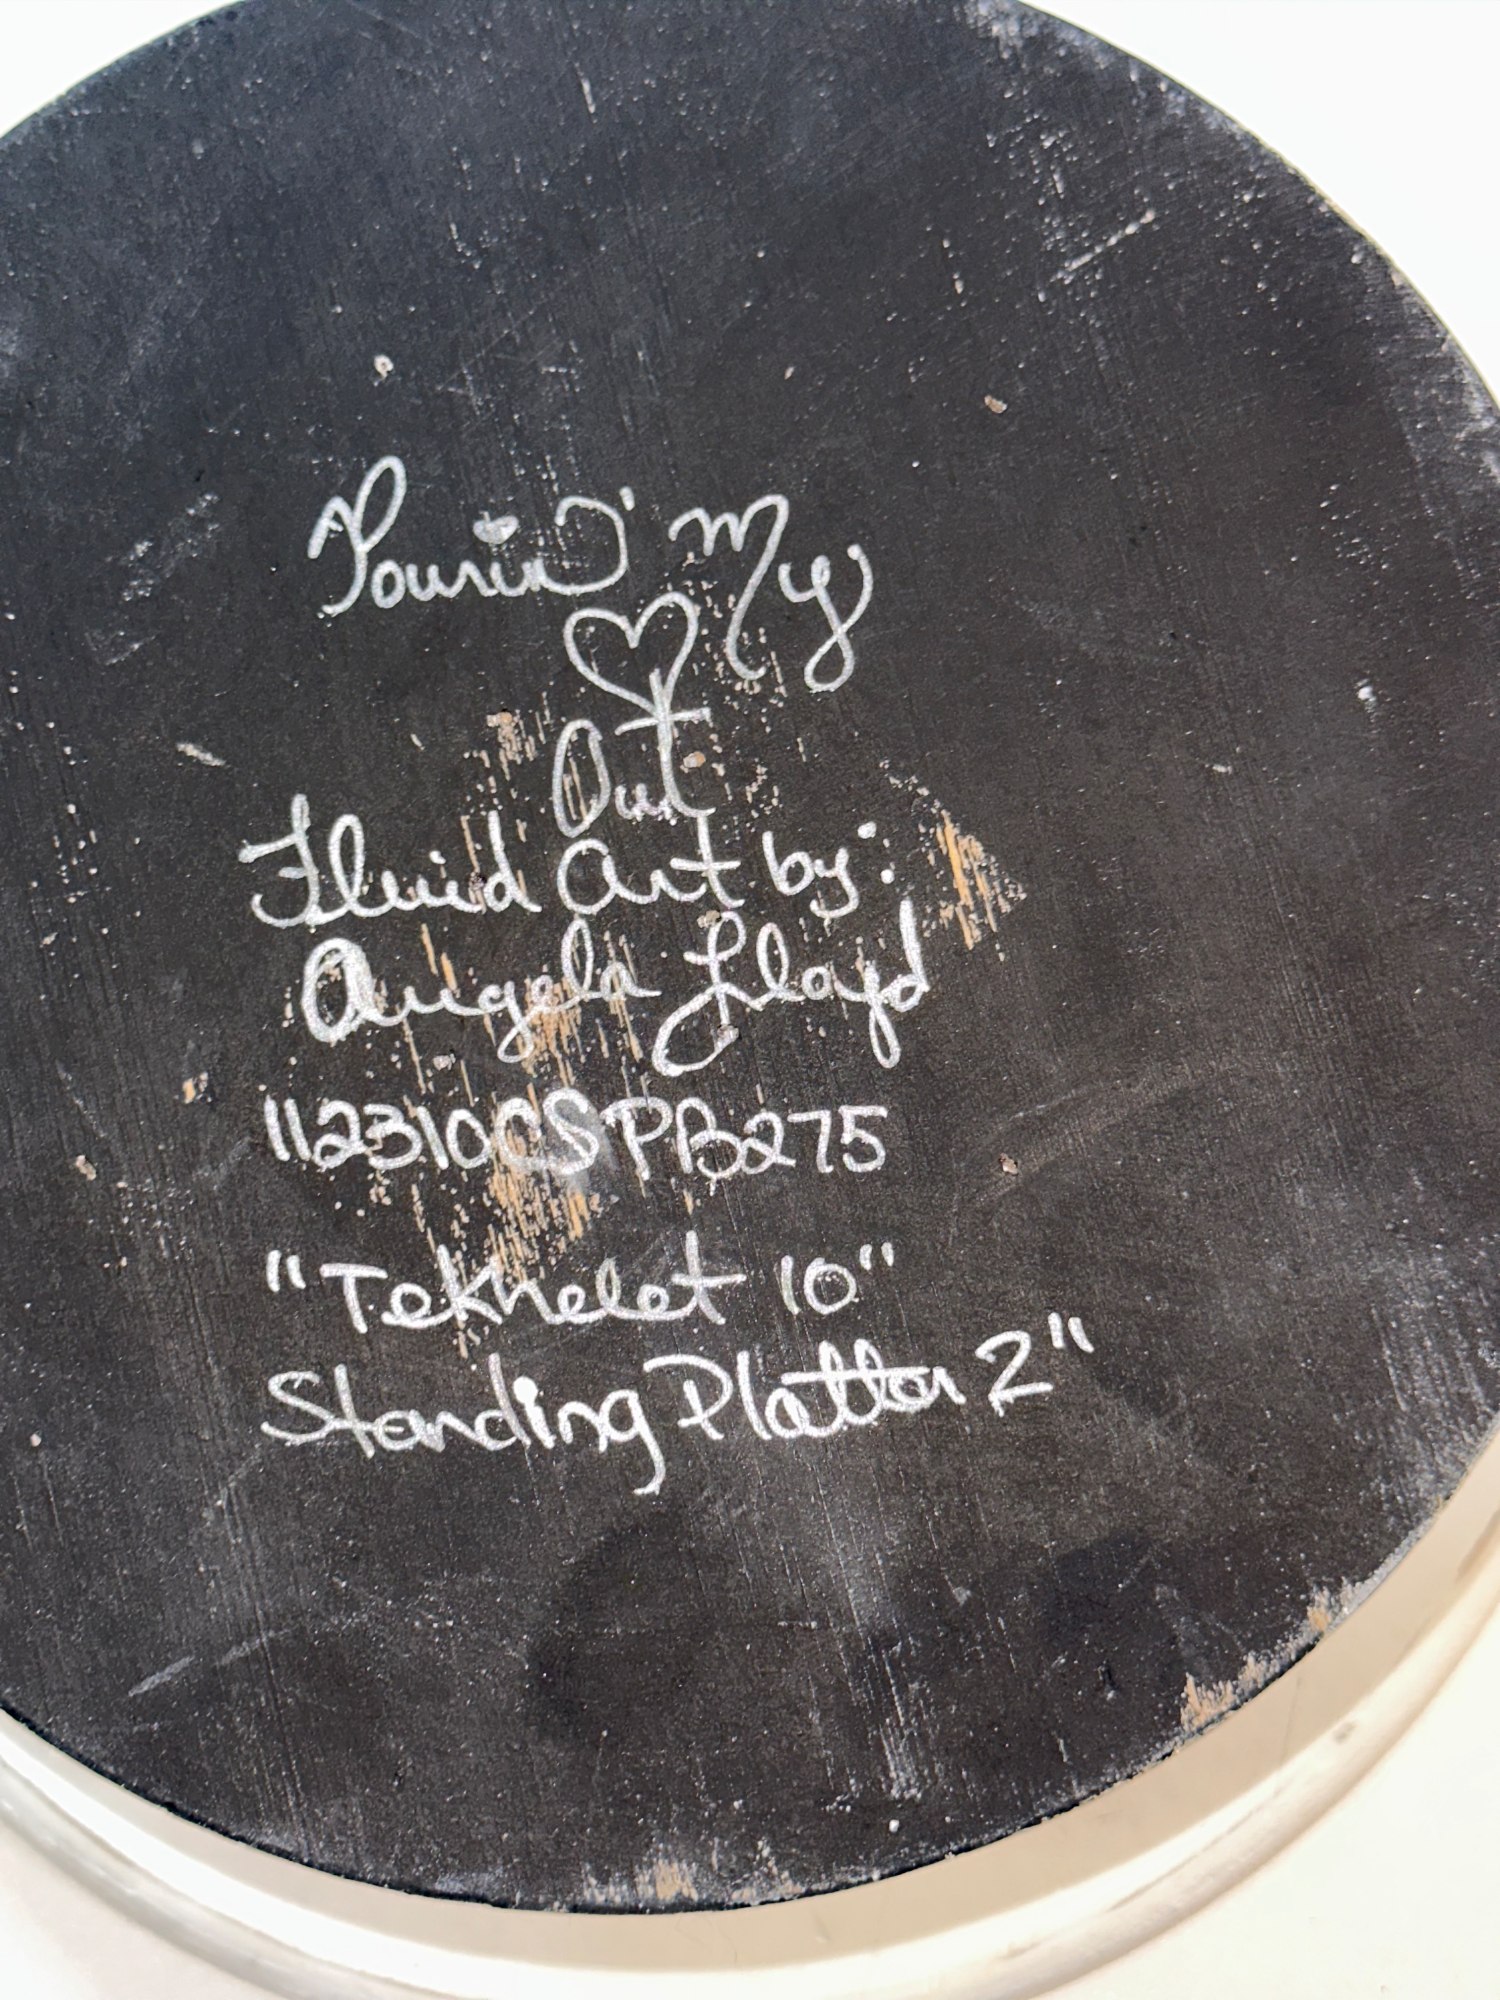 Pourin' My
♡
Out
Fluid Art by:
Angela Lloyd
112310CSPB275
"Tekhelet 10"
Standing Platter 2"